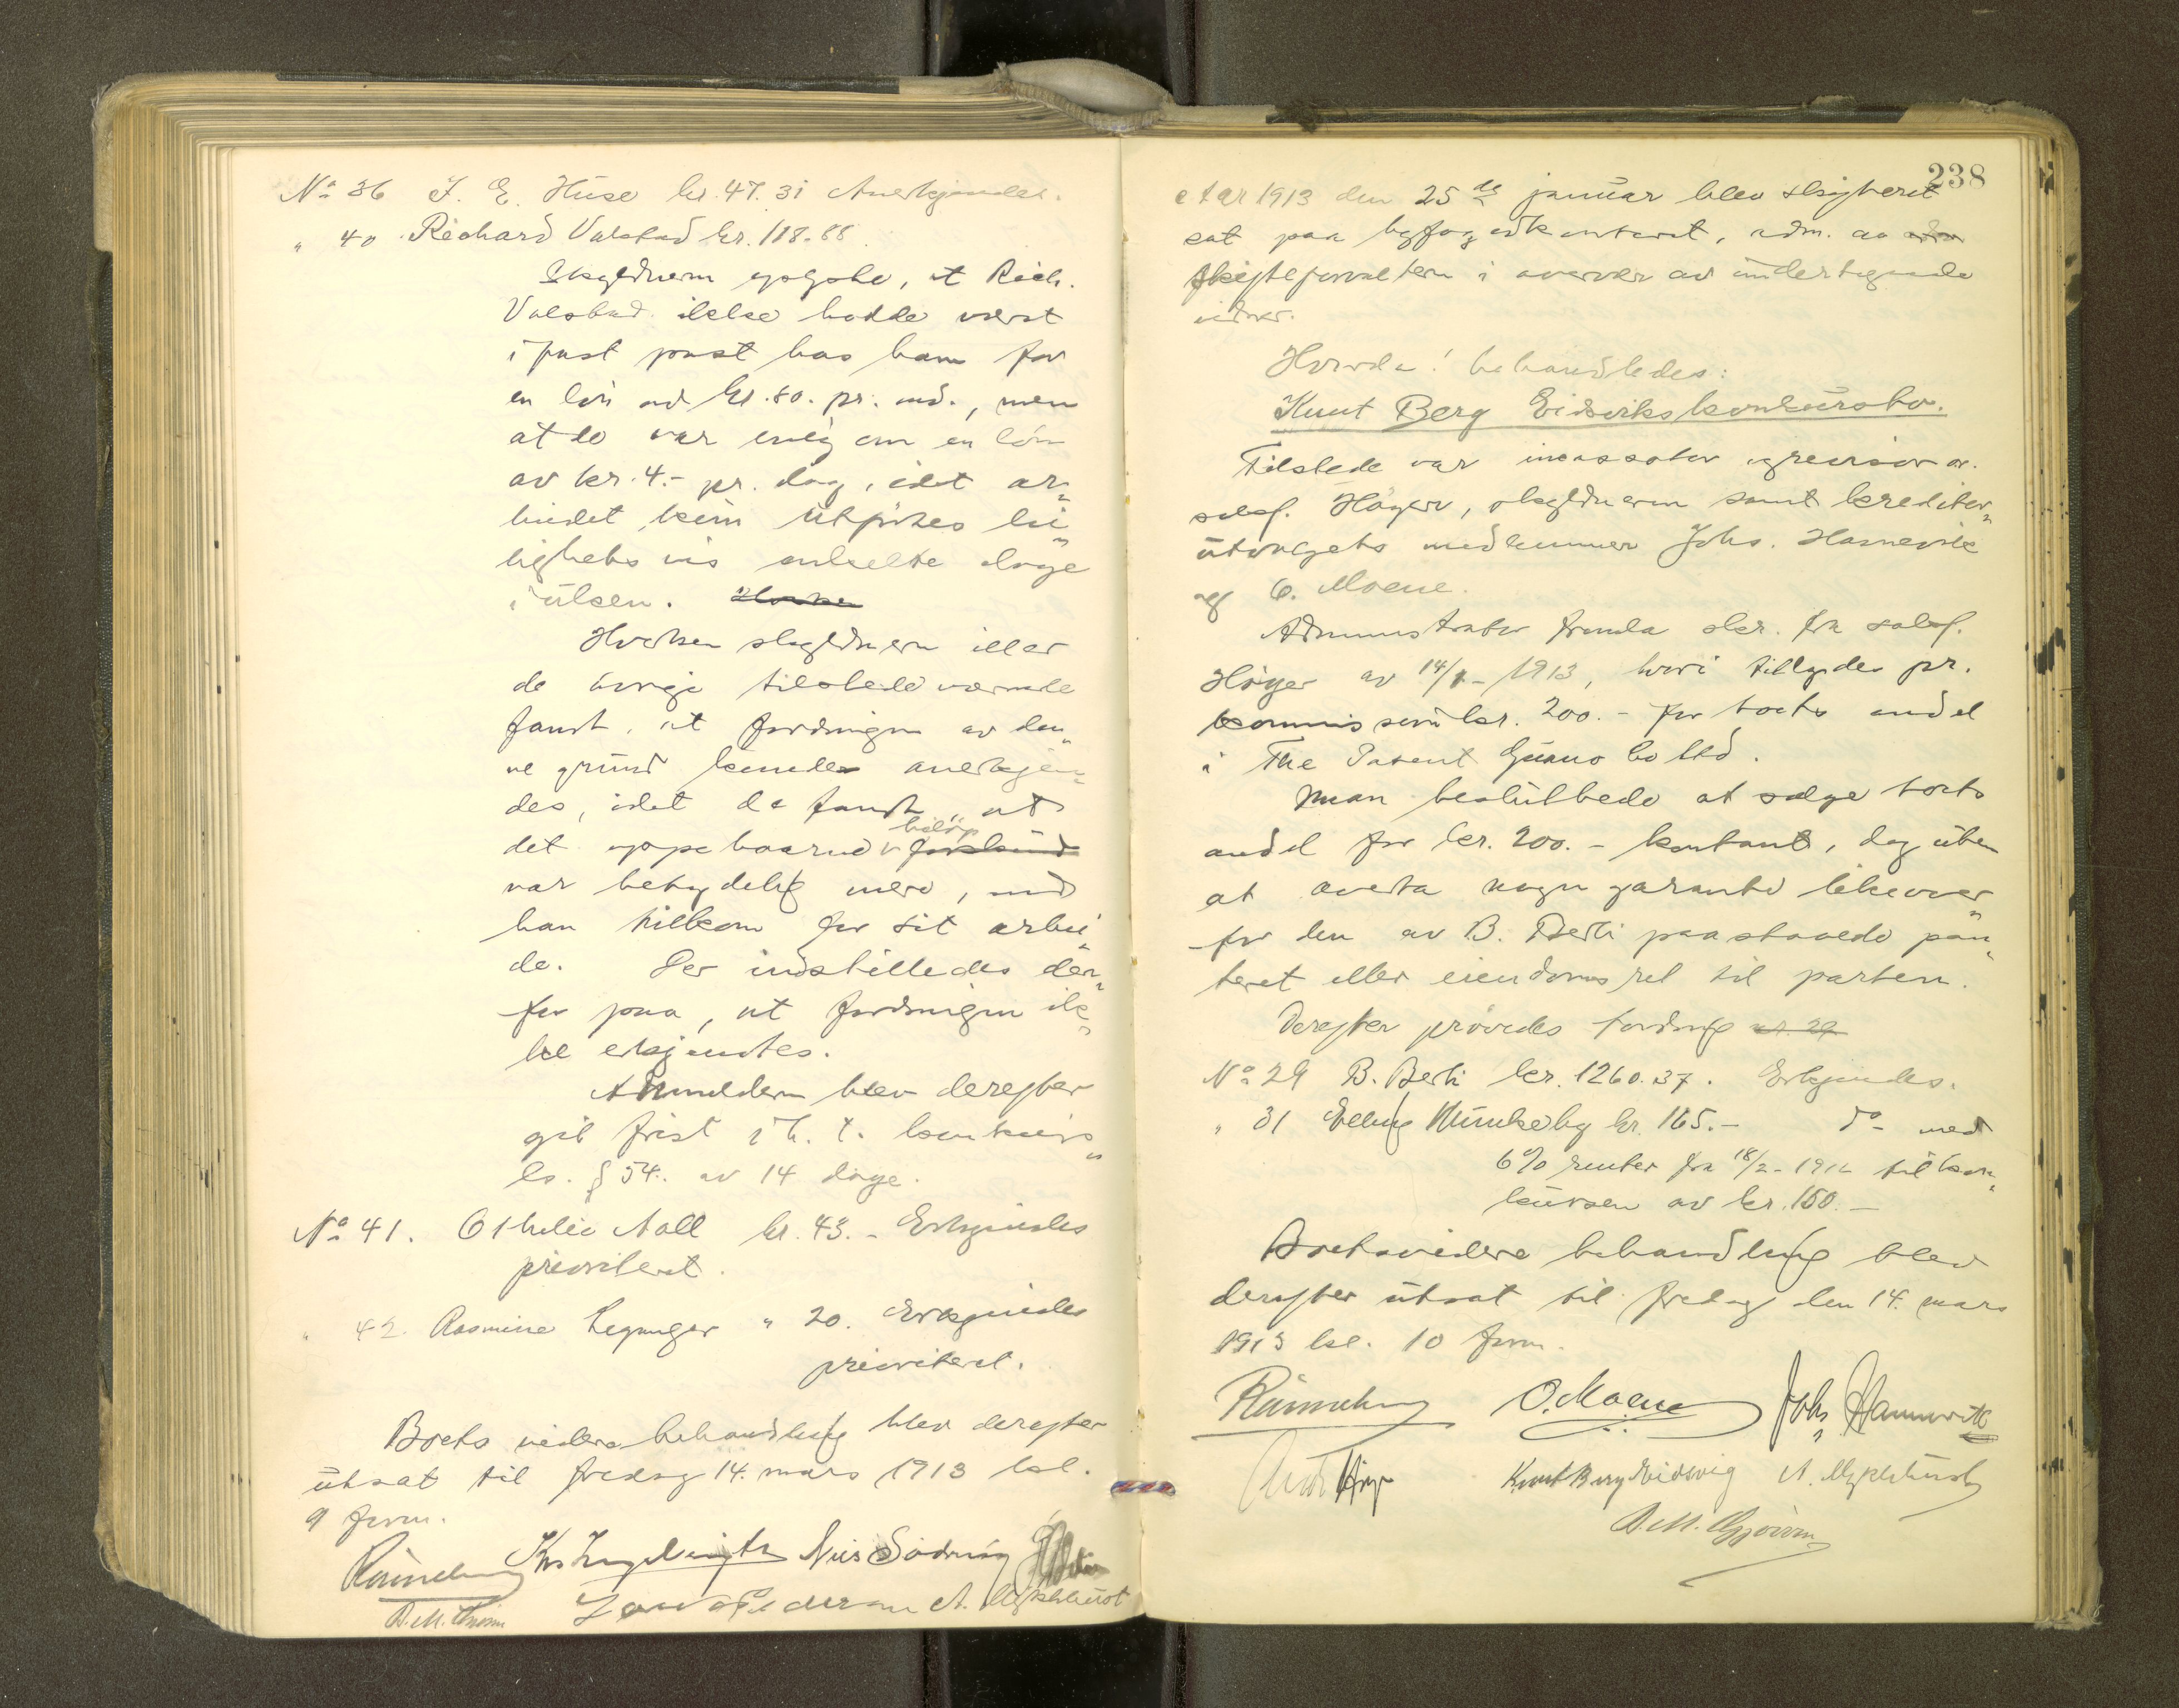 No 36 J. E. Huse kr. 47.31 Anerkjendes.
" 40 Richard Valstad kr. 118.88
Skyldneren opgote, at Rich.
Valstad ikke hadde været
i fast post hos ham for
en løn av kr. 80. pr. md., men
at de var enig om en løn
av kr. 4.- pr. dag, idet ar-
beidet kun utførtes lei-
lighets vis enkelte dage
i uken.
Hverken skyldneren eller
de øvrige tilstedeværende
fandt, at fordringen av den-
ne grund kunde anerkjen-
des, idet de fandt, at
det oppebaarne beløp
var betydelig mere, end
han tilkom for sit arbei-
de. Der indstilledes der-
for paa, at fordringen ik-
ke erkjendtes.
Anmelderen blev derefter
git frist i h. t. konkurs-
ls. § 54. av 14 dage.
No 41. Othilie Aall kr. 43.- Erkjendes
prioritert.
" 42. Rasmine Leganger " 20. Erkjendes
prioritert.
Boets videre behandling blev derefter
utsat til fredag 14. mars 1913 kl.
9 form.
Nils Södring
A. Myklebust
238
Aar 1913 den 25de januar blev skifteret
sat paa byfogedkontoret, adm. av
skifteforvalteren i overvær av undertegnede
vidner.
Hvorda! behandledes:
Knut Berg Eidsviks konkursbo.
Tilstede var incassator og revisor o.
sakf. Høyer, skyldneren samt kreditor-
utvalgets medlemmer Johs. Hamnevik
og O. Moene.
Administrator fremla skr. fra sakf.
Høyer av 14/1-1913, hvori tilbydes pr.
kommission kr. 200.- for boets andel
i The Patent Guano Co Ltd.
Man besluttede at sælge boets
andel for kr. 200.- kontant, dog uten
at overta nogen garanti likeover-
for den av B. Berli paastaaede pan-
teret eller eiendomsret til parten.
Derefter prøvedes fordring nr. 29
No 29 B. Berli kr. 1260.37. Erkjendes.
" 31 Elling Munkeby kr. 165.- do- med
6% renter fra 18/2-1912 til kon-
kursen av kr. 150.-
Boets videre behandling blev
derefter utsat til fredag den 14. mars
1913 kl. 10 form.
O. Moene Johs Hamnevik
Knut Berg Eidsvig A. Myklebust